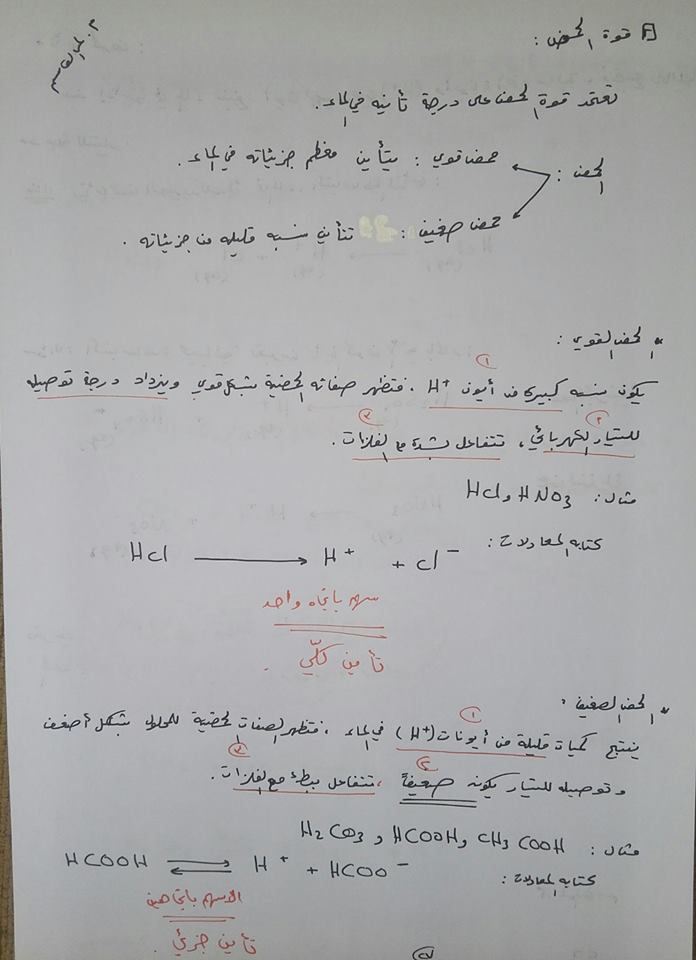 م. لمى القاسم
قوة الحمض :
تعتمد قوة الحمض على درجة تأينه في الماء.
الحمض :
حمض قوي : يتأين معظم جزيئاته في الماء .
حمض ضعيف : تتأين نسبه قليله من جزيئاته .
* الحمض القوي :
يكون نسبه كبيرة من أيون H+ ، فتظهر صفاته الحمضية بشكل قوي ويزداد درجة توصيله
للتيار الكهربائي ، تتفاعل بشدة مع الفلزات .
مثال : HNO3 و HCl
كتابه المعادلات :
HCl ⟶ H+ + Cl−
سهم باتجاه واحد
تأين كلّي .
* الحمض الضعيف :
ينتج كميات قليلة من أيونات (H+) في الماء ، فتظهر الصفات الحمضية للمحلول بشكل أضعف
و توصيله للتيار يكون ضعيفاً ، تتفاعل ببطئ مع الفلزات .
مثال : CH3COOH و HCOOH و H2CO3
كتابه المعادلات :
HCOOH ⇌ H+ + HCOO−
الاسهم باتجاهين
تأين جزئي .